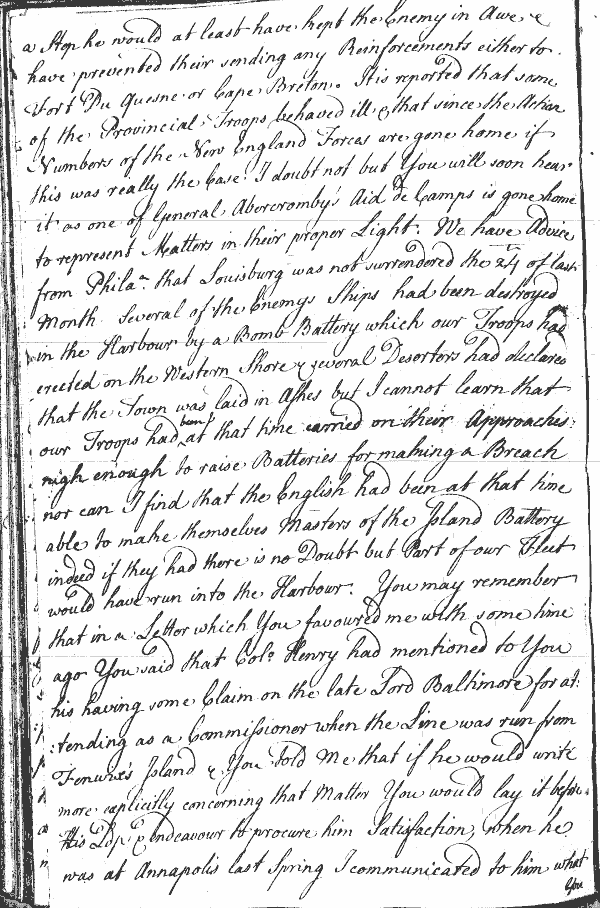 a Stop he would at least have kept the Enemy in Awe &
have prevented their sending any Reinforcements either to
Fort Du Quesne or Cape Breton. It is reported that some
of the Provincial Troops behaved ill & that since the Action
Numbers of the New England Forces are gone home if
this was really the Case I doubt not but You will soon hear
it as one of General Abercromby's Aid De Camps is gone home
to represent Matters in their proper Light. We have Advice
from Phila.a that Louisburg was not surrendered the 24 of last
Month Several of the Enemys Ships had been destroyed
in the Harbour by a Bomb Battery which our Troops had
erected on the Western Shore & several Deserters had declared
that the Town was laid in Ashes but I cannot learn that
our Troops had been at that time carried on their Approaches
nigh enough to raise Batteries for making a Breach
nor can I find that the English had been at that time
able to make themselves Masters of the Island Battery
indeed if they had there is no Doubt but Part of our Fleet
would have run into the Harbour. You may remember
that in a Letter which You favoured me with some time
ago You said that Colo. Henry had mentioned to You
his having some Claim on the late Lord Baltimore for at:
:tending as a Commissioner when the Line was run from
Fenwix's Island & You told Me that if he would write
more explicitly concerning that Matter You would lay it before
His Ldp. & endeavour to procure him Satisfaction, when he
was at Annapolis last Spring I communicated to him what
You